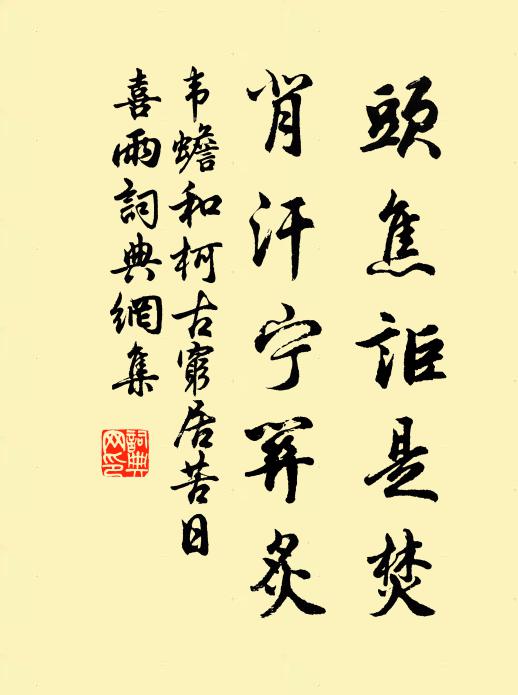 頭焦詎是焚
背汗宁關炙
韦蟾和柯古窮居苦日
喜雨詞典網集
詞典
网印